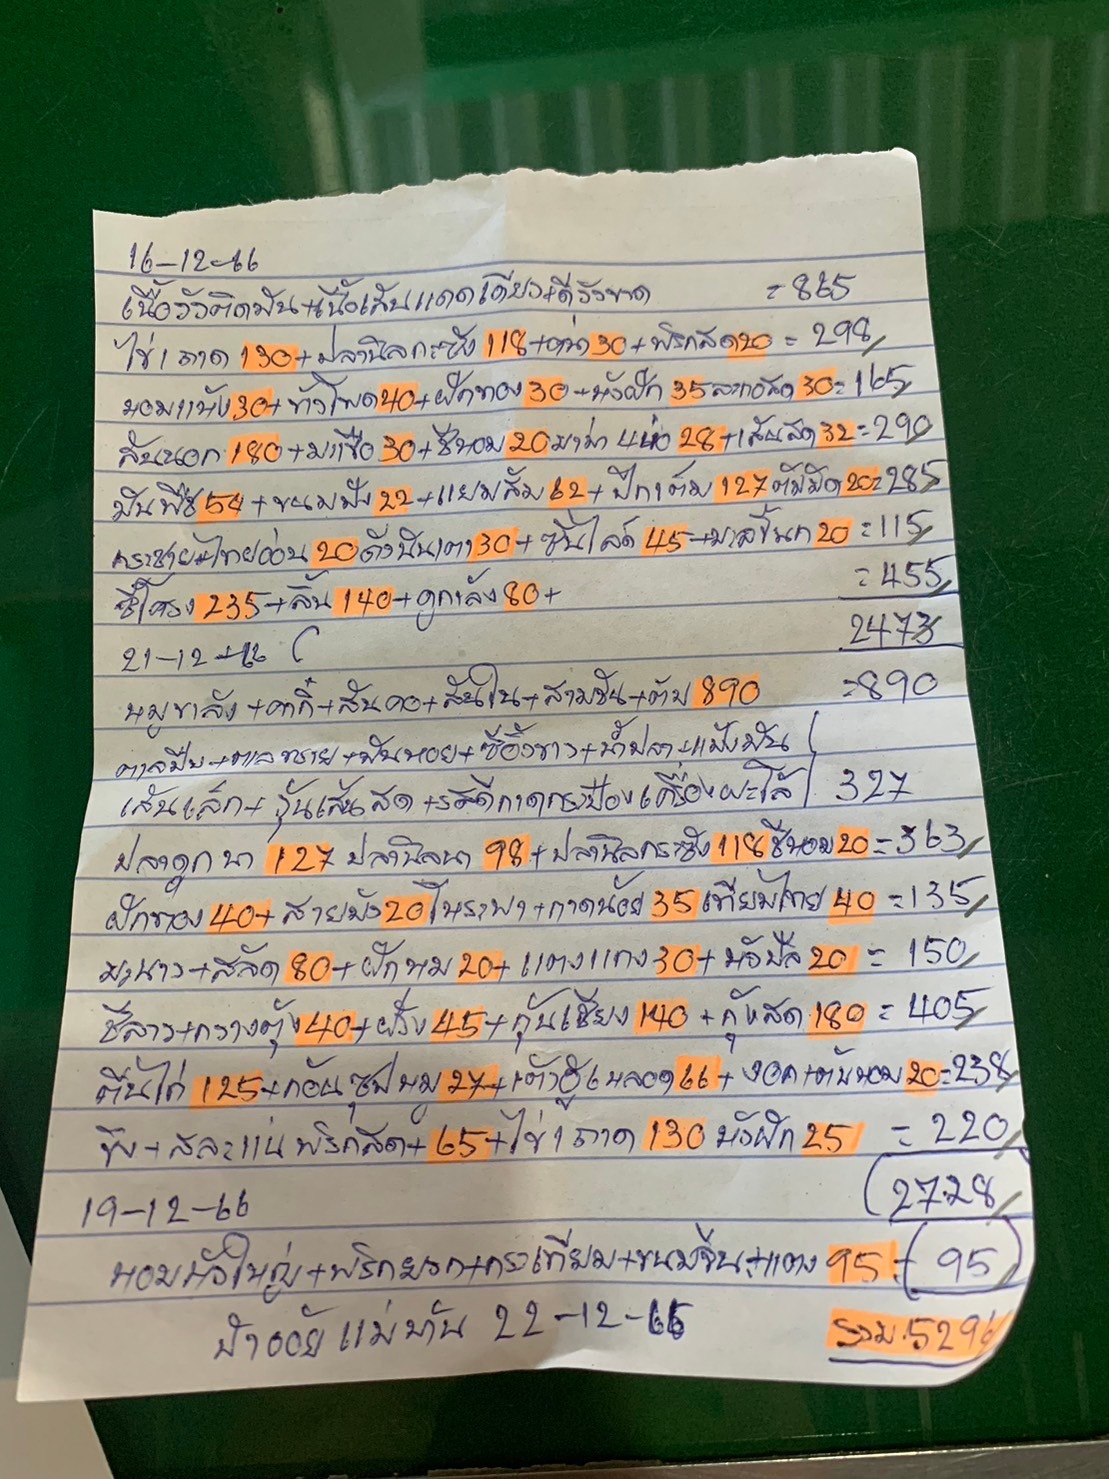 16-12-66
เนื้อวัวติดมัน+เนื้อเส้นแดดเดียว+ดีวัวขวด = 865
ไข่ 1 ถาด 130+ปลานิลกระชัง 118+ข่า 30+พริกสด 20 = 298
หอมแห้ง 30+ข้าวโพด 40+ฝักทอง 30+ถั่วฝัก 35 30 = 165
สันนอก 180+มะเขือ 30+ชีหอม 20 มาม่า 4 ห่อ 28+เส้นสด 32 = 290
มันพืช 54+ขนมปัง 22+แยมส้ม 62+ปีกเต็ม 127 20 = 285
กระชาย+ไทยอ่อน 20 30+ 45+ 20 = 115
ซี่โครง 235+ลิ้น 140+ 80+ = 455
2473
21-12-66
หมูขาลัง+คากี้+สันคอ+สันใน+สามชั้น+ตับ 890 = 890
ตาลปี๊บ+ตาลทราย+มันหอย+ซีอิ้วขาว+น้ำปลา+แป้งมัน
เส้นเล็ก+วุ้นเส้นสด+รสดี 327
ปลาดุกนา 127 ปลานิลนา 98+ปลานิลกระชัง 118 ชีหอม 20 = 363
ฝักทอง 40+สายบัว 20 โหระพา+กาดน้อย 35 เทียมไทย 40 = 135
มะนาว+สลัด 80+ฝักหม 20+แตงแกง 30+ 20 = 150
ชีลาว+กวางตุ้ง 40+ฝรั่ง 45+กุ้นเชียง 140+กุ้งสด 180 = 405
ตีนไก่ 125+ก้อนซุปหมู 27+เต้าหู้หลอด 66+งอก+ต้นหอม 20 = 238
ขิง+สะระแน่ พริกสด+ 65+ไข่ 1 ถาด 130 ถั่วฝัก 25 = 220
2728
19-12-66
หอมหัวใหญ่+พริกยวก+กระเทียม+ขนมจีน+แตง 95 = 95
ป้าออย แม่บ้าน 22-12-66 รวม.5296